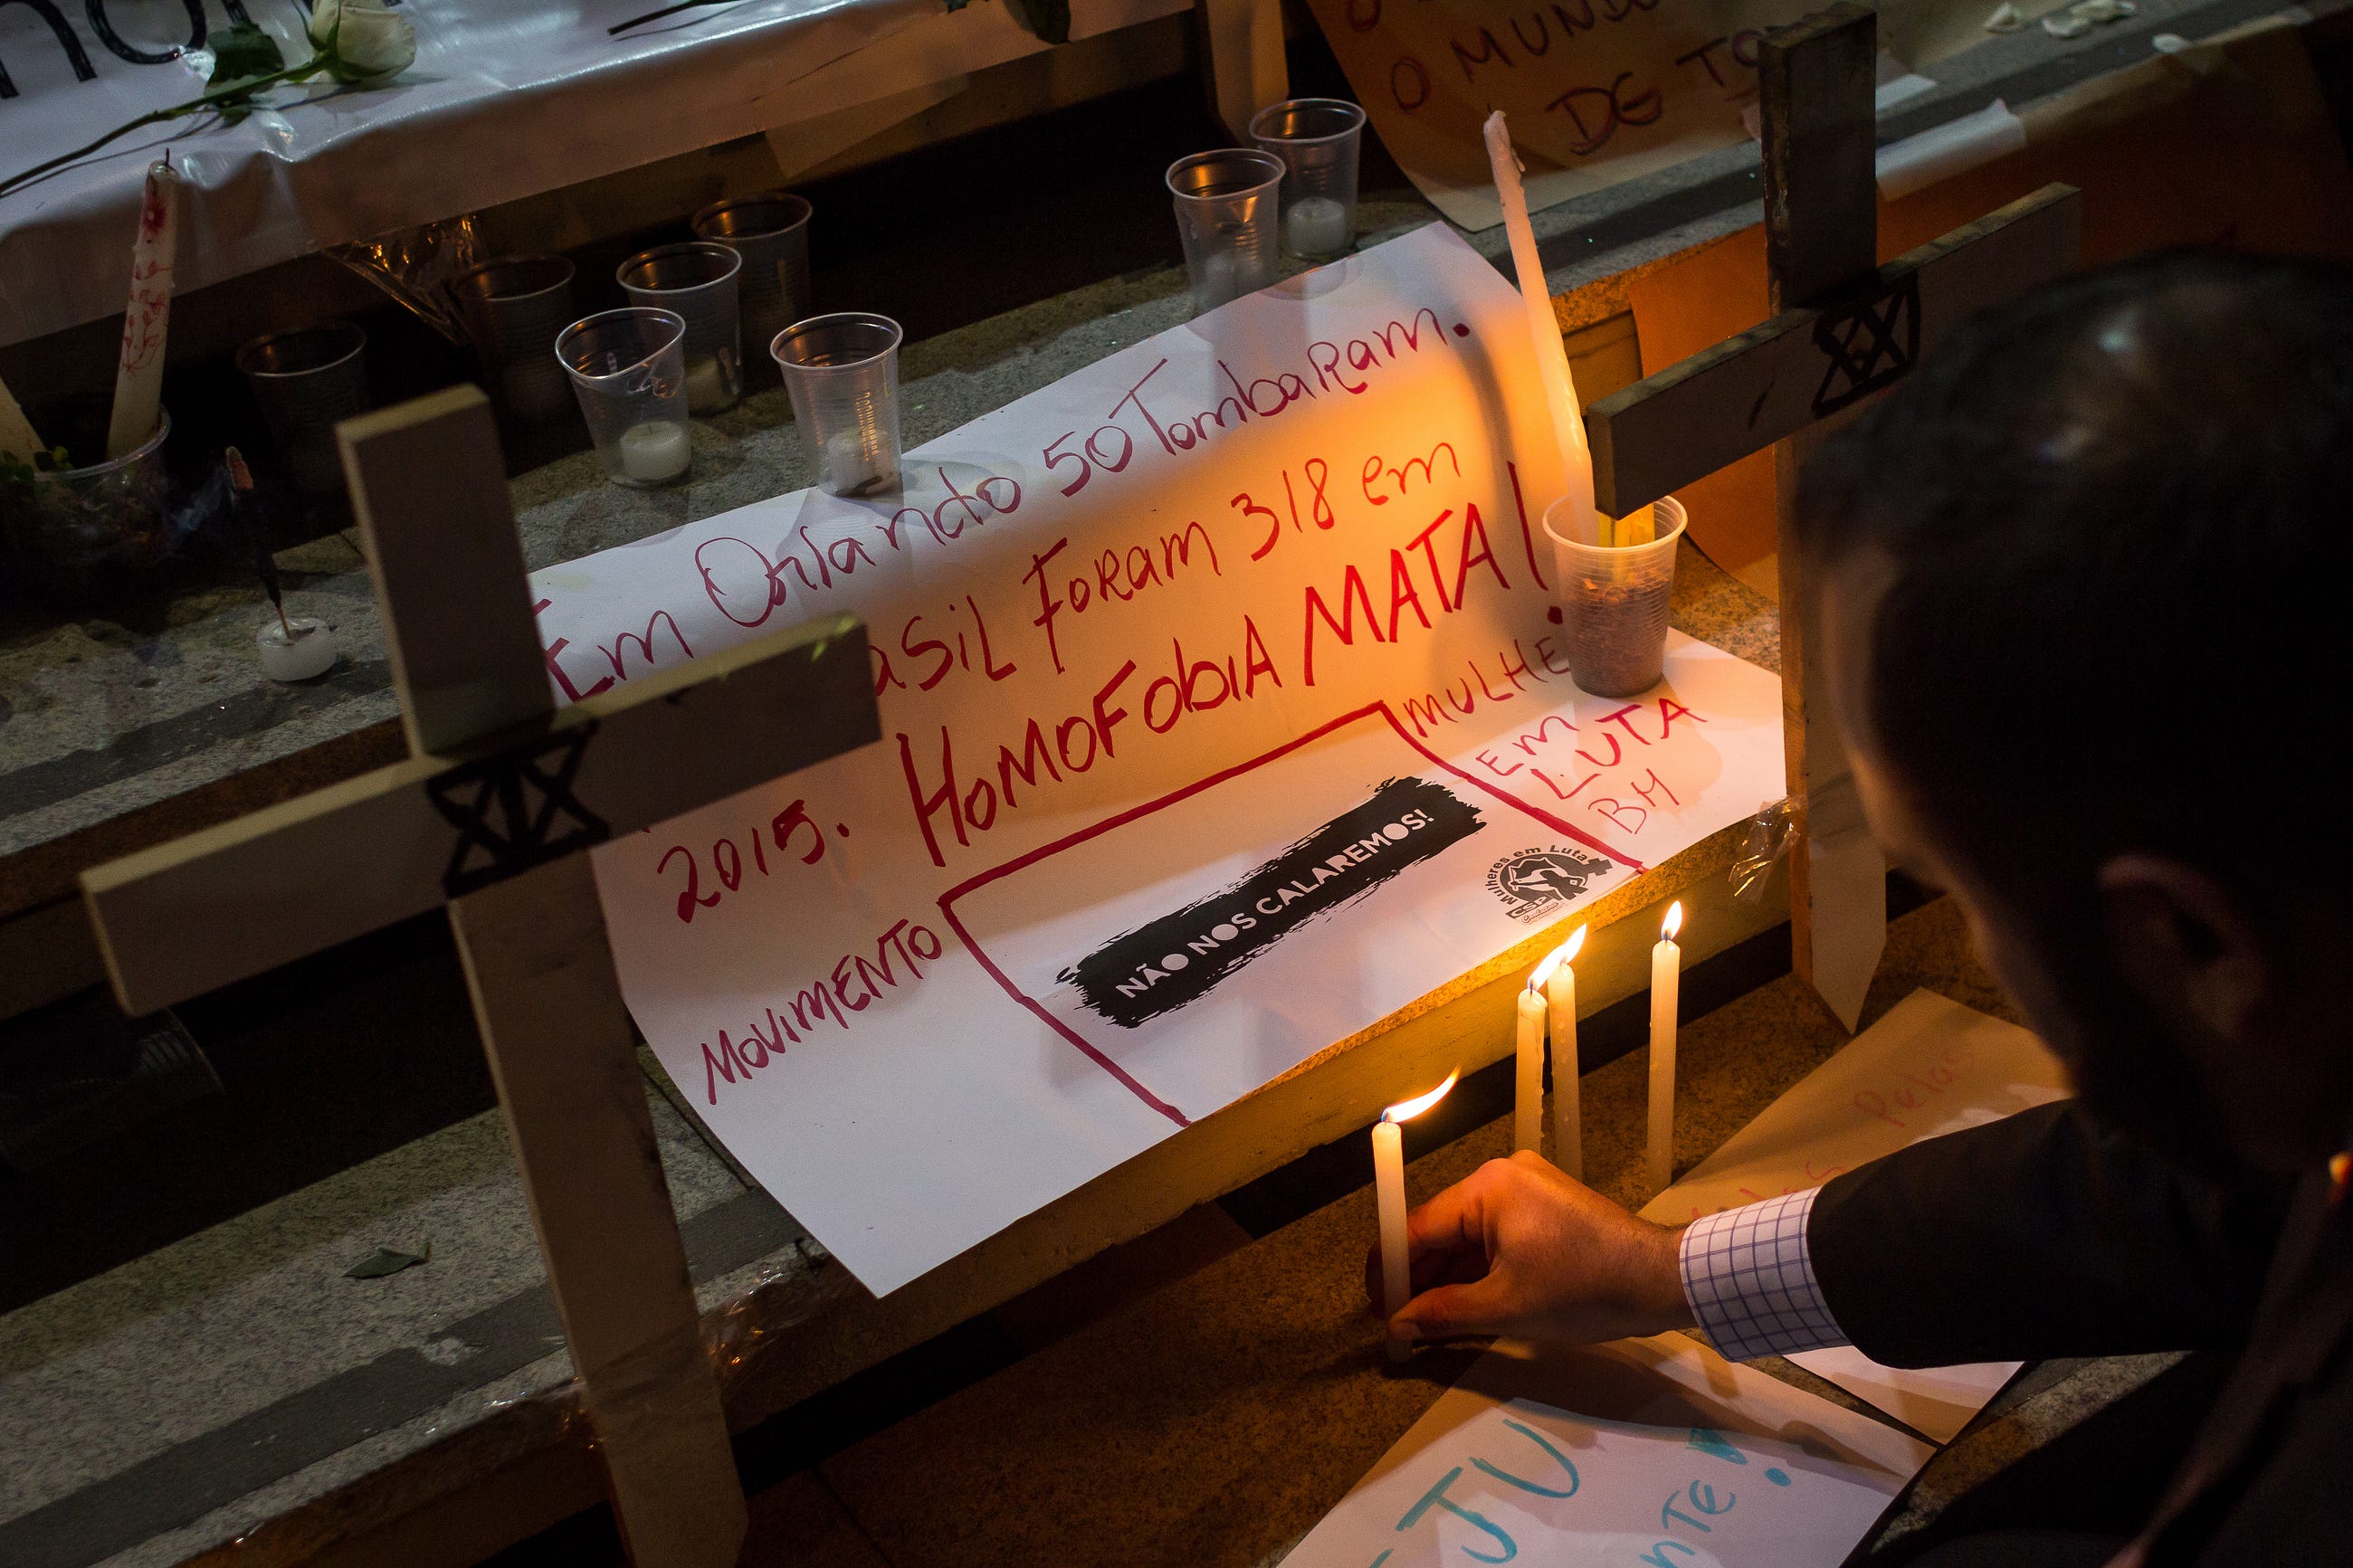 O MUNDO
DE
Em Orlando 50 TombaRam.
asiL FoRam 318 em
2015. HomoFobiA MATA!
MULHE
EM
LUTA
BH
MOVIMENTO
NÃO NOS CALAREMOS!
Mulheres em Luta
CSP
Pelas